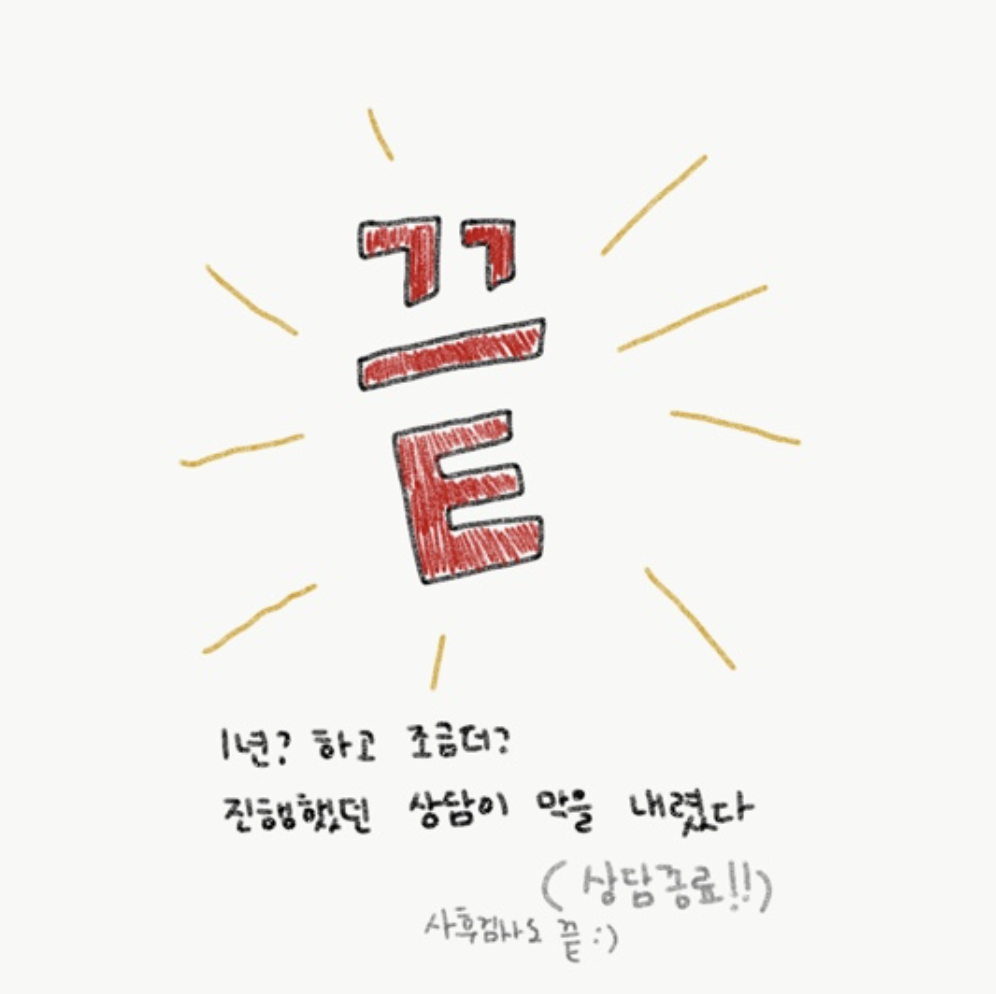 끝
1년? 하고 조금더?
진행했던 상담이 막을 내렸다
(상담종료!!)
사후검사도 끝 :)